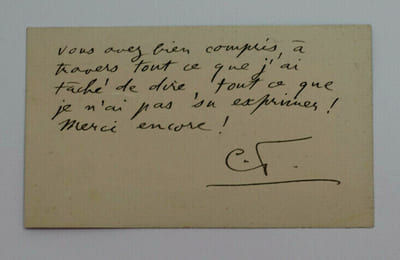 vous avez bien compris, à
travers tout ce que j'ai
tâché de dire, tout ce que
je n'ai pas su exprimer !
Merci encore !